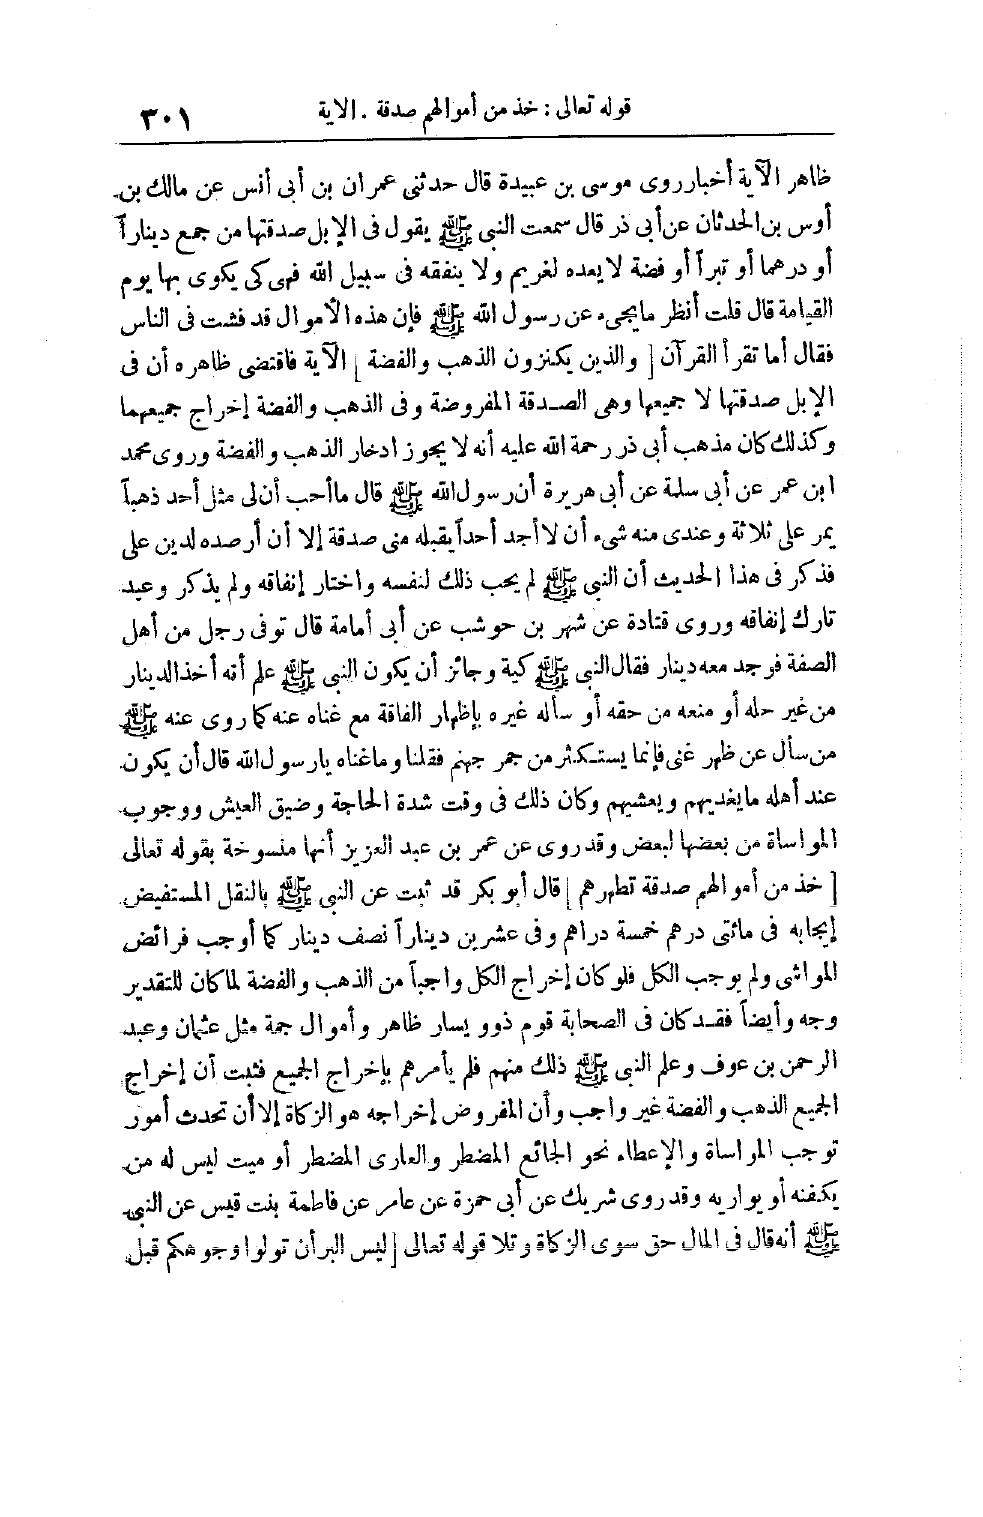 قوله تعالى : خذ من أموالهم صدقة . الاية ٣٠١
ظاهر الآية أخبار روى موسى بن عبيدة قال حدثنى عمران بن أبى أنس عن مالك بن
أوس بن الحدثان عن أبى ذر قال سمعت النبى ﷺ يقول فى الإبل صدقتها من جمع ديناراً
أو درهما أو تبرآ أو فضة لا يعده لغريم ولا ينفقه فى سبيل الله فهى كى يكوى بها يوم
القيامة قال قلت أنظر ما يجىء عن رسول الله ﷺ فإن هذه الأموال قد فشت فى الناس
فقال أما تقرأ القرآن [ والذين يكنزون الذهب والفضة ] الآية فاقتضى ظاهره أن فى
الإبل صدقتها لا جميعها وهى الصدقة المفروضة وفى الذهب والفضة إخراج جميعهما
وكذلك كان مذهب أبى ذر رحمة الله عليه أنه لا يجوز ادخار الذهب والفضة وروى محمد
ابن عمر عن أبى سلمة عن أبى هريرة أن رسول الله ﷺ قال ما أحب أن لى مثل أحد ذهباً
يمر على ثلاثة وعندى منه شىء أن لا أجد أحداً يقبله منى صدقة إلا أن أرصده لدين على
فذكر فى هذا الحديث أن النبى ﷺ لم يحب ذلك لنفسه واختار إنفاقه ولم يذكر وعيد
تارك إنفاقه وروى قتادة عن شهر بن حوشب عن أبى أمامة قال توفى رجل من أهل
الصفة فوجد معه دينار فقال النبى ﷺ كية وجائز أن يكون النبى ﷺ علم أنه أخذ الدينار
من غير حله أو منعه من حقه أو سأله غيره بإظهار الفاقة مع غناه عنه كما روى عنه ﷺ
من سأل عن ظهر غنى فإنما يستكثر من جمر جهنم فقلنا وما غناه يا رسول الله قال أن يكون
عند أهله ما يغديهم ويعشيهم وكان ذلك فى وقت شدة الحاجة وضيق العيش ووجوب
المواساة من بعضها لبعض وقد روى عن عمر بن عبد العزيز أنها منسوخة بقوله تعالى
[ خذ من أموالهم صدقة تطهرهم ] قال أبو بكر قد ثبت عن النبى ﷺ بالنقل المستفيض
إيجابه فى مائتى درهم خمسة دراهم وفى عشرين ديناراً نصف دينار كما أوجب فرائض
المواشى ولم يوجب الكل فلو كان إخراج الكل واجباً من الذهب والفضة لما كان للتقدير
وجه وأيضاً فقد كان فى الصحابة قوم ذوو يسار ظاهر وأموال جمة مثل عثمان وعبد
الرحمن بن عوف وعلم النبى ﷺ ذلك منهم فلم يأمرهم بإخراج الجميع فثبت أن إخراج
الجميع الذهب والفضة غير واجب وأن المفروض إخراجه هو الزكاة إلا أن تحدث أمور
توجب المواساة والإعطاء نحو الجائع المضطر والعارى المضطر أو ميت ليس له من
يكفنه أو يواريه وقد روى شريك عن أبى حمزة عن عامر عن فاطمة بنت قيس عن النبى
ﷺ أنه قال فى المال حق سوى الزكاة وتلا قوله تعالى [ ليس البر أن تولوا وجوهكم قبل